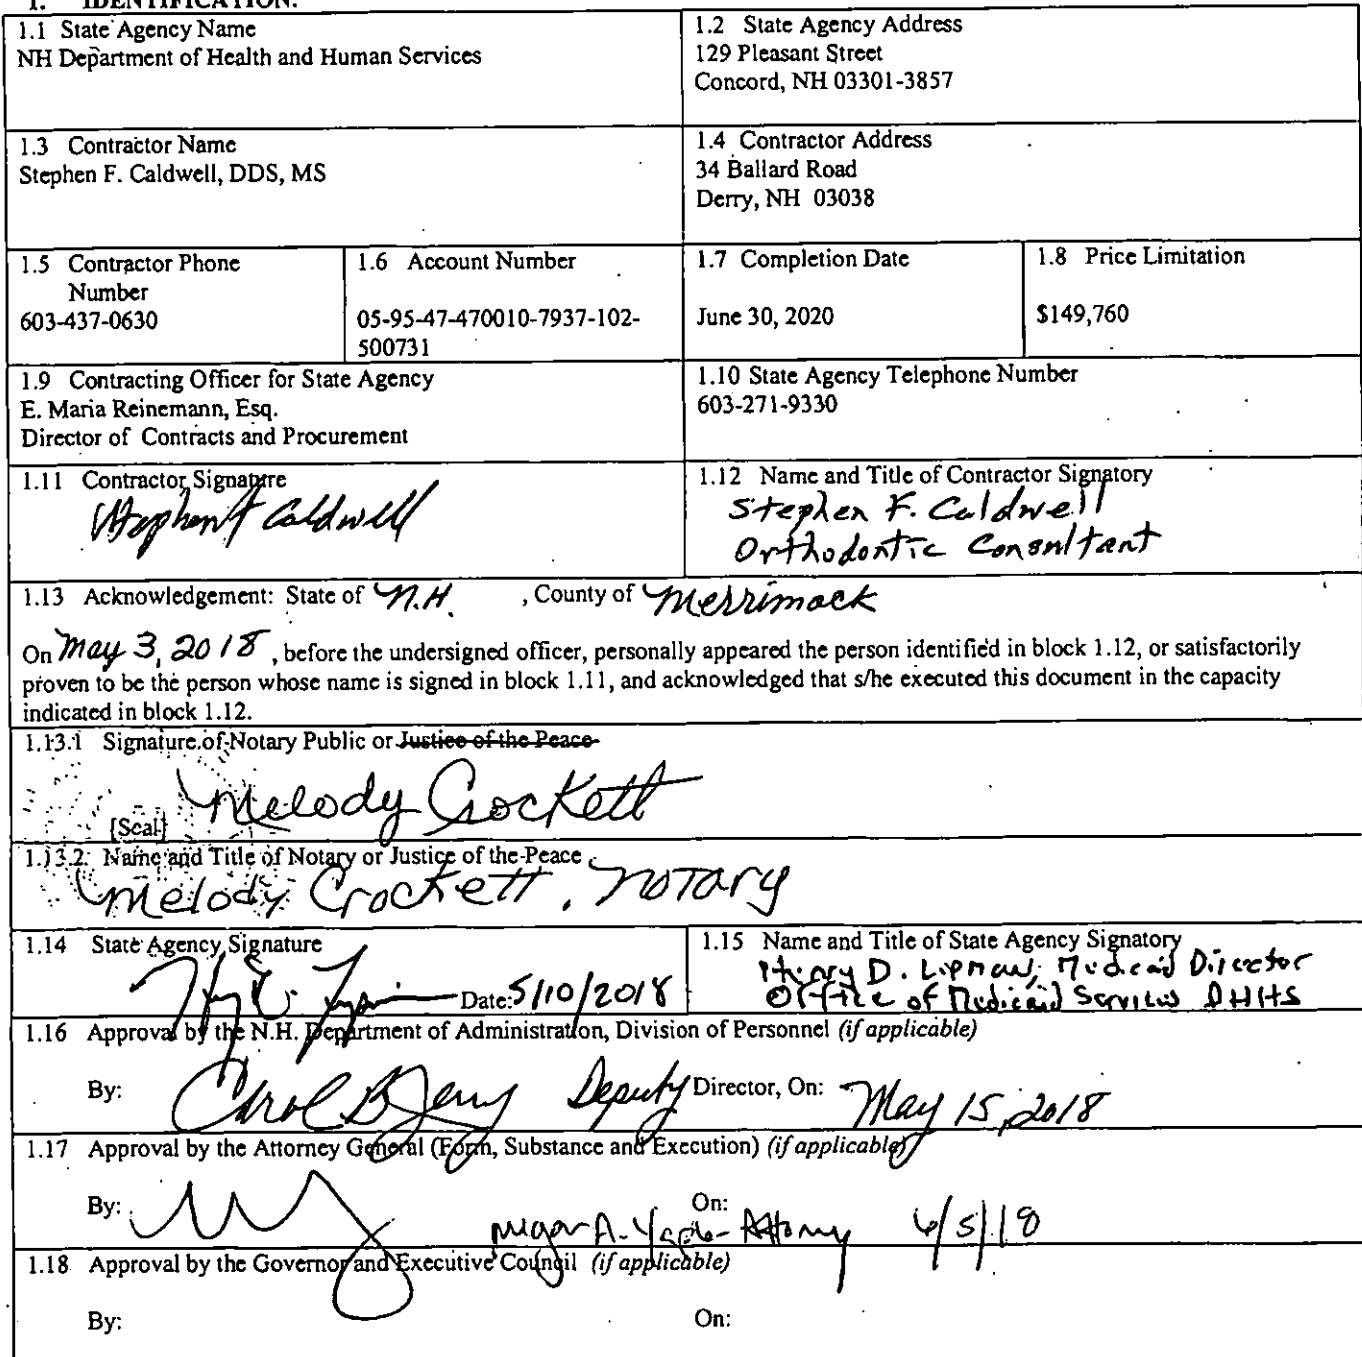 1. IDENTIFICATION.
1.1 State Agency Name
NH Department of Health and Human Services
1.2 State Agency Address
129 Pleasant Street
Concord, NH 03301-3857
1.3 Contractor Name
Stephen F. Caldwell, DDS, MS
1.4 Contractor Address
34 Ballard Road
Derry, NH 03038
1.5 Contractor Phone
Number
603-437-0630
1.6 Account Number
05-95-47-470010-7937-102-
500731
1.7 Completion Date
June 30, 2020
1.8 Price Limitation
$149,760
1.9 Contracting Officer for State Agency
E. Maria Reinemann, Esq.
Director of Contracts and Procurement
1.10 State Agency Telephone Number
603-271-9330
1.11 Contractor Signature
Stephen F Caldwell
1.12 Name and Title of Contractor Signatory
Stephen F. Caldwell
Orthodontic Consultant
1.13 Acknowledgement: State of N.H. , County of Merrimack
On May 3, 2018 , before the undersigned officer, personally appeared the person identified in block 1.12, or satisfactorily
proven to be the person whose name is signed in block 1.11, and acknowledged that s/he executed this document in the capacity
indicated in block 1.12.
1.13.1 Signature of Notary Public or Justice of the Peace
Melody Crockett
[Seal]
1.13.2 Name and Title of Notary or Justice of the Peace
Melody Crockett, Notary
1.14 State Agency Signature
Date: 5/10/2018
1.15 Name and Title of State Agency Signatory
Henry D. Lipman, Medicaid Director
Office of Medicaid Services DHHS
1.16 Approval by the N.H. Department of Administration, Division of Personnel (if applicable)
By: Deputy Director, On: May 15, 2018
1.17 Approval by the Attorney General (Form, Substance and Execution) (if applicable)
By: On:
A. Attorney 6/5/18
1.18 Approval by the Governor and Executive Council (if applicable)
By: On: